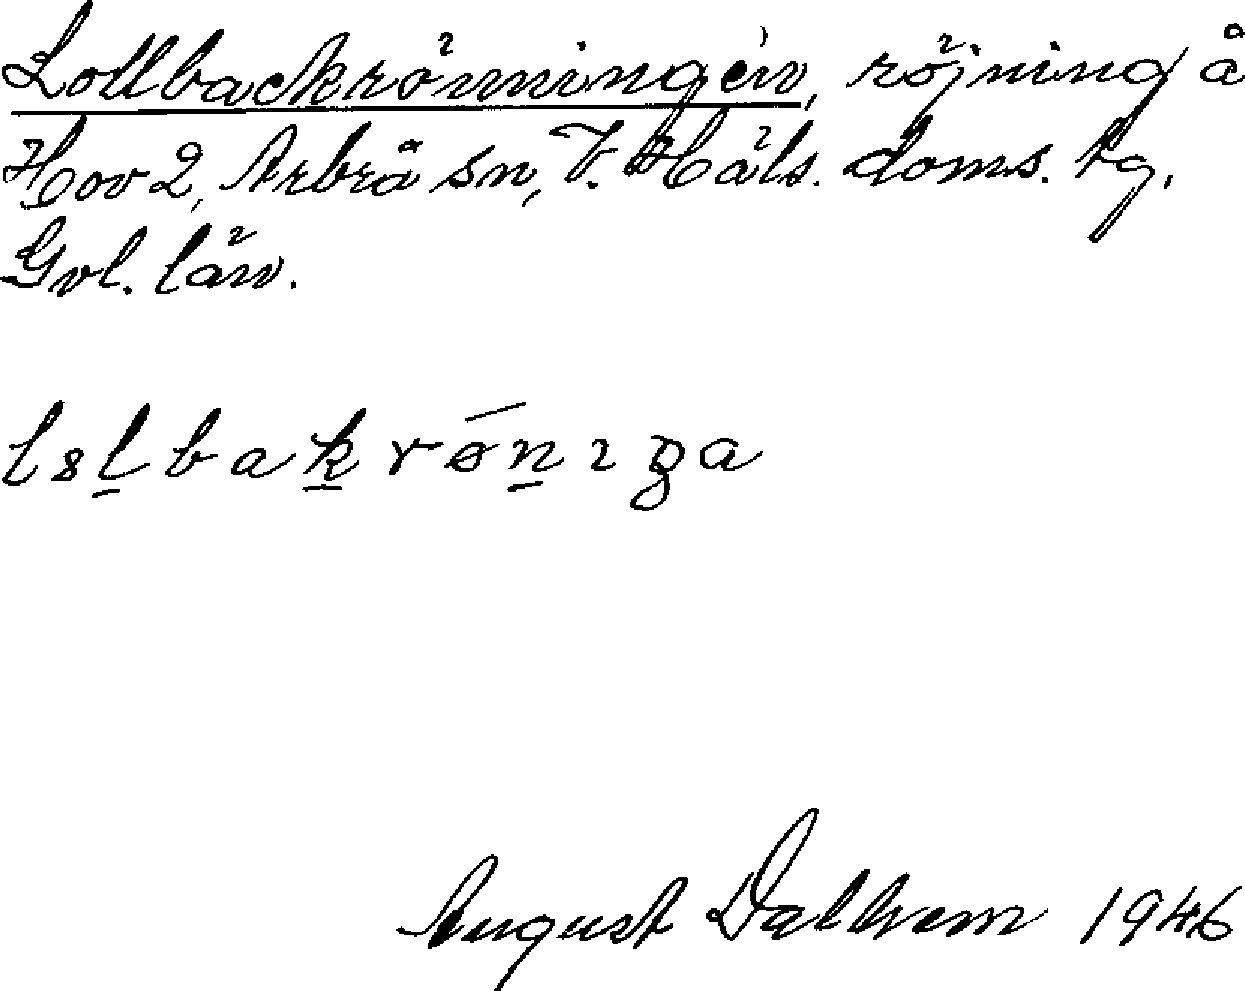 Lollbackrönningen, röjning å
Hov 2, Arbrå sn, V. Häls. doms. tg.
Gvl. län.
lsl̲bak̲røn̲ıŋa
August Dalhem 1946